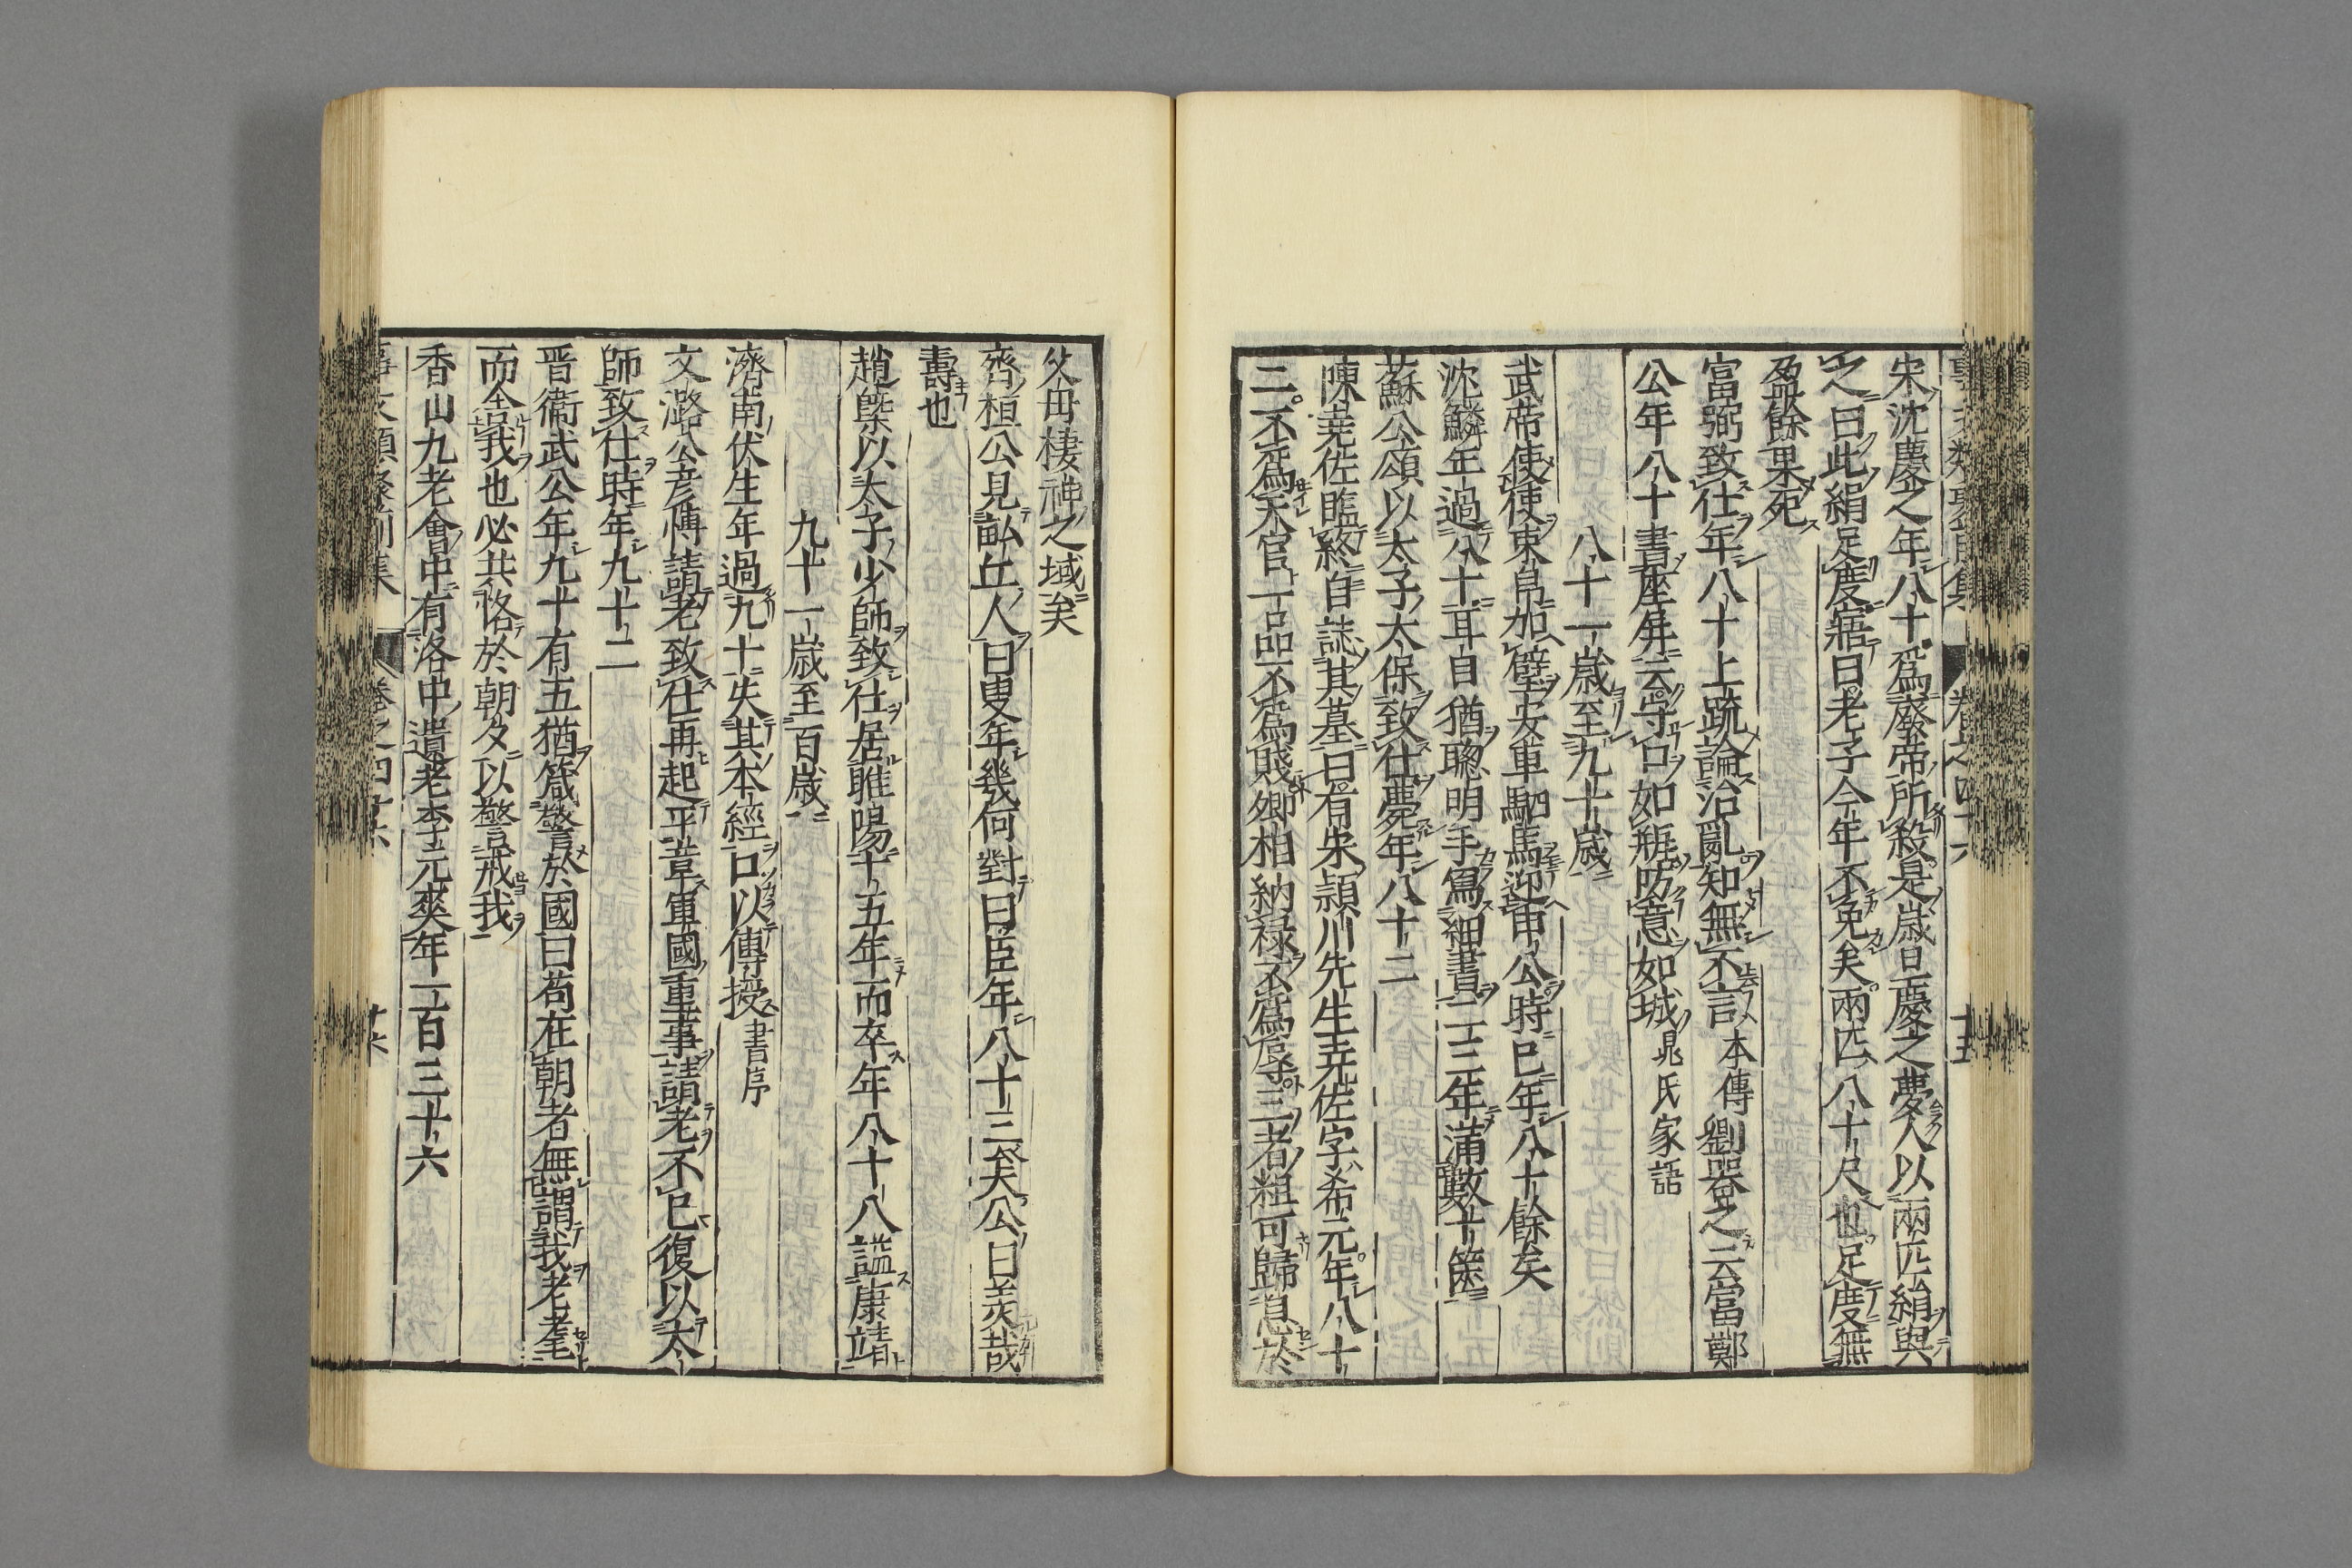 宋沈慶之年八十爲廢帝所殺是歲旦慶之夢人以兩匹絹與
之曰此絹足度寤曰老子今年不免矣兩匹八十尺也足度無
盈餘果死
富弼致仕年八十上疏論治亂知無不言本傳 劉器之云富鄭
公年八十書座屏云守口如瓶防意如城晁氏家語
八十一歲至九十歲
武帝使使束帛加璧安車駟馬迎申公時已年八十餘矣
沈麟年過八十耳目猶聰明手寫細書二三年滿數十篋
蘇公頌以太子太保致仕薨年八十二
陳堯佐臨終自誌其墓曰有宋潁川先生堯佐字希元年八十
二不爲夭官一品不爲賤卿相納祿不爲辱三者粗可歸息於
父母棲神之域矣
齊桓公見畝丘人曰叟年幾何對曰臣年八十三矣公曰美哉
壽也
趙槩以太子少師致仕居睢陽十五年而卒年八十八謚康靖
九十一歲至百歲
濟南伏生年過九十失其本經口以傳授書序
文潞公彦博請老致仕再起平章軍國重事請老不已復以太
師致仕時年九十二
晋衛武公年九十有五猶箴警於國曰苟在朝者無謂我老耄
而舍我也必共恪於朝夕以警戒我
香山九老會中有洛中遺老李元爽年一百三十六
事文類聚前集 卷之四十六